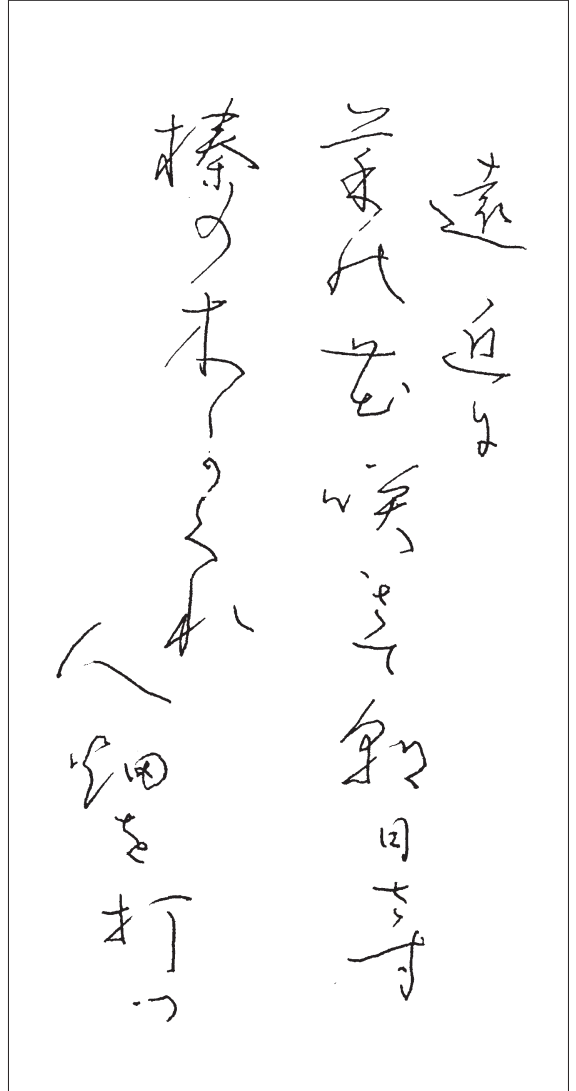 遠近に
菜の花咲きて朝日さす
榛の木かくれ
人畑を打つ